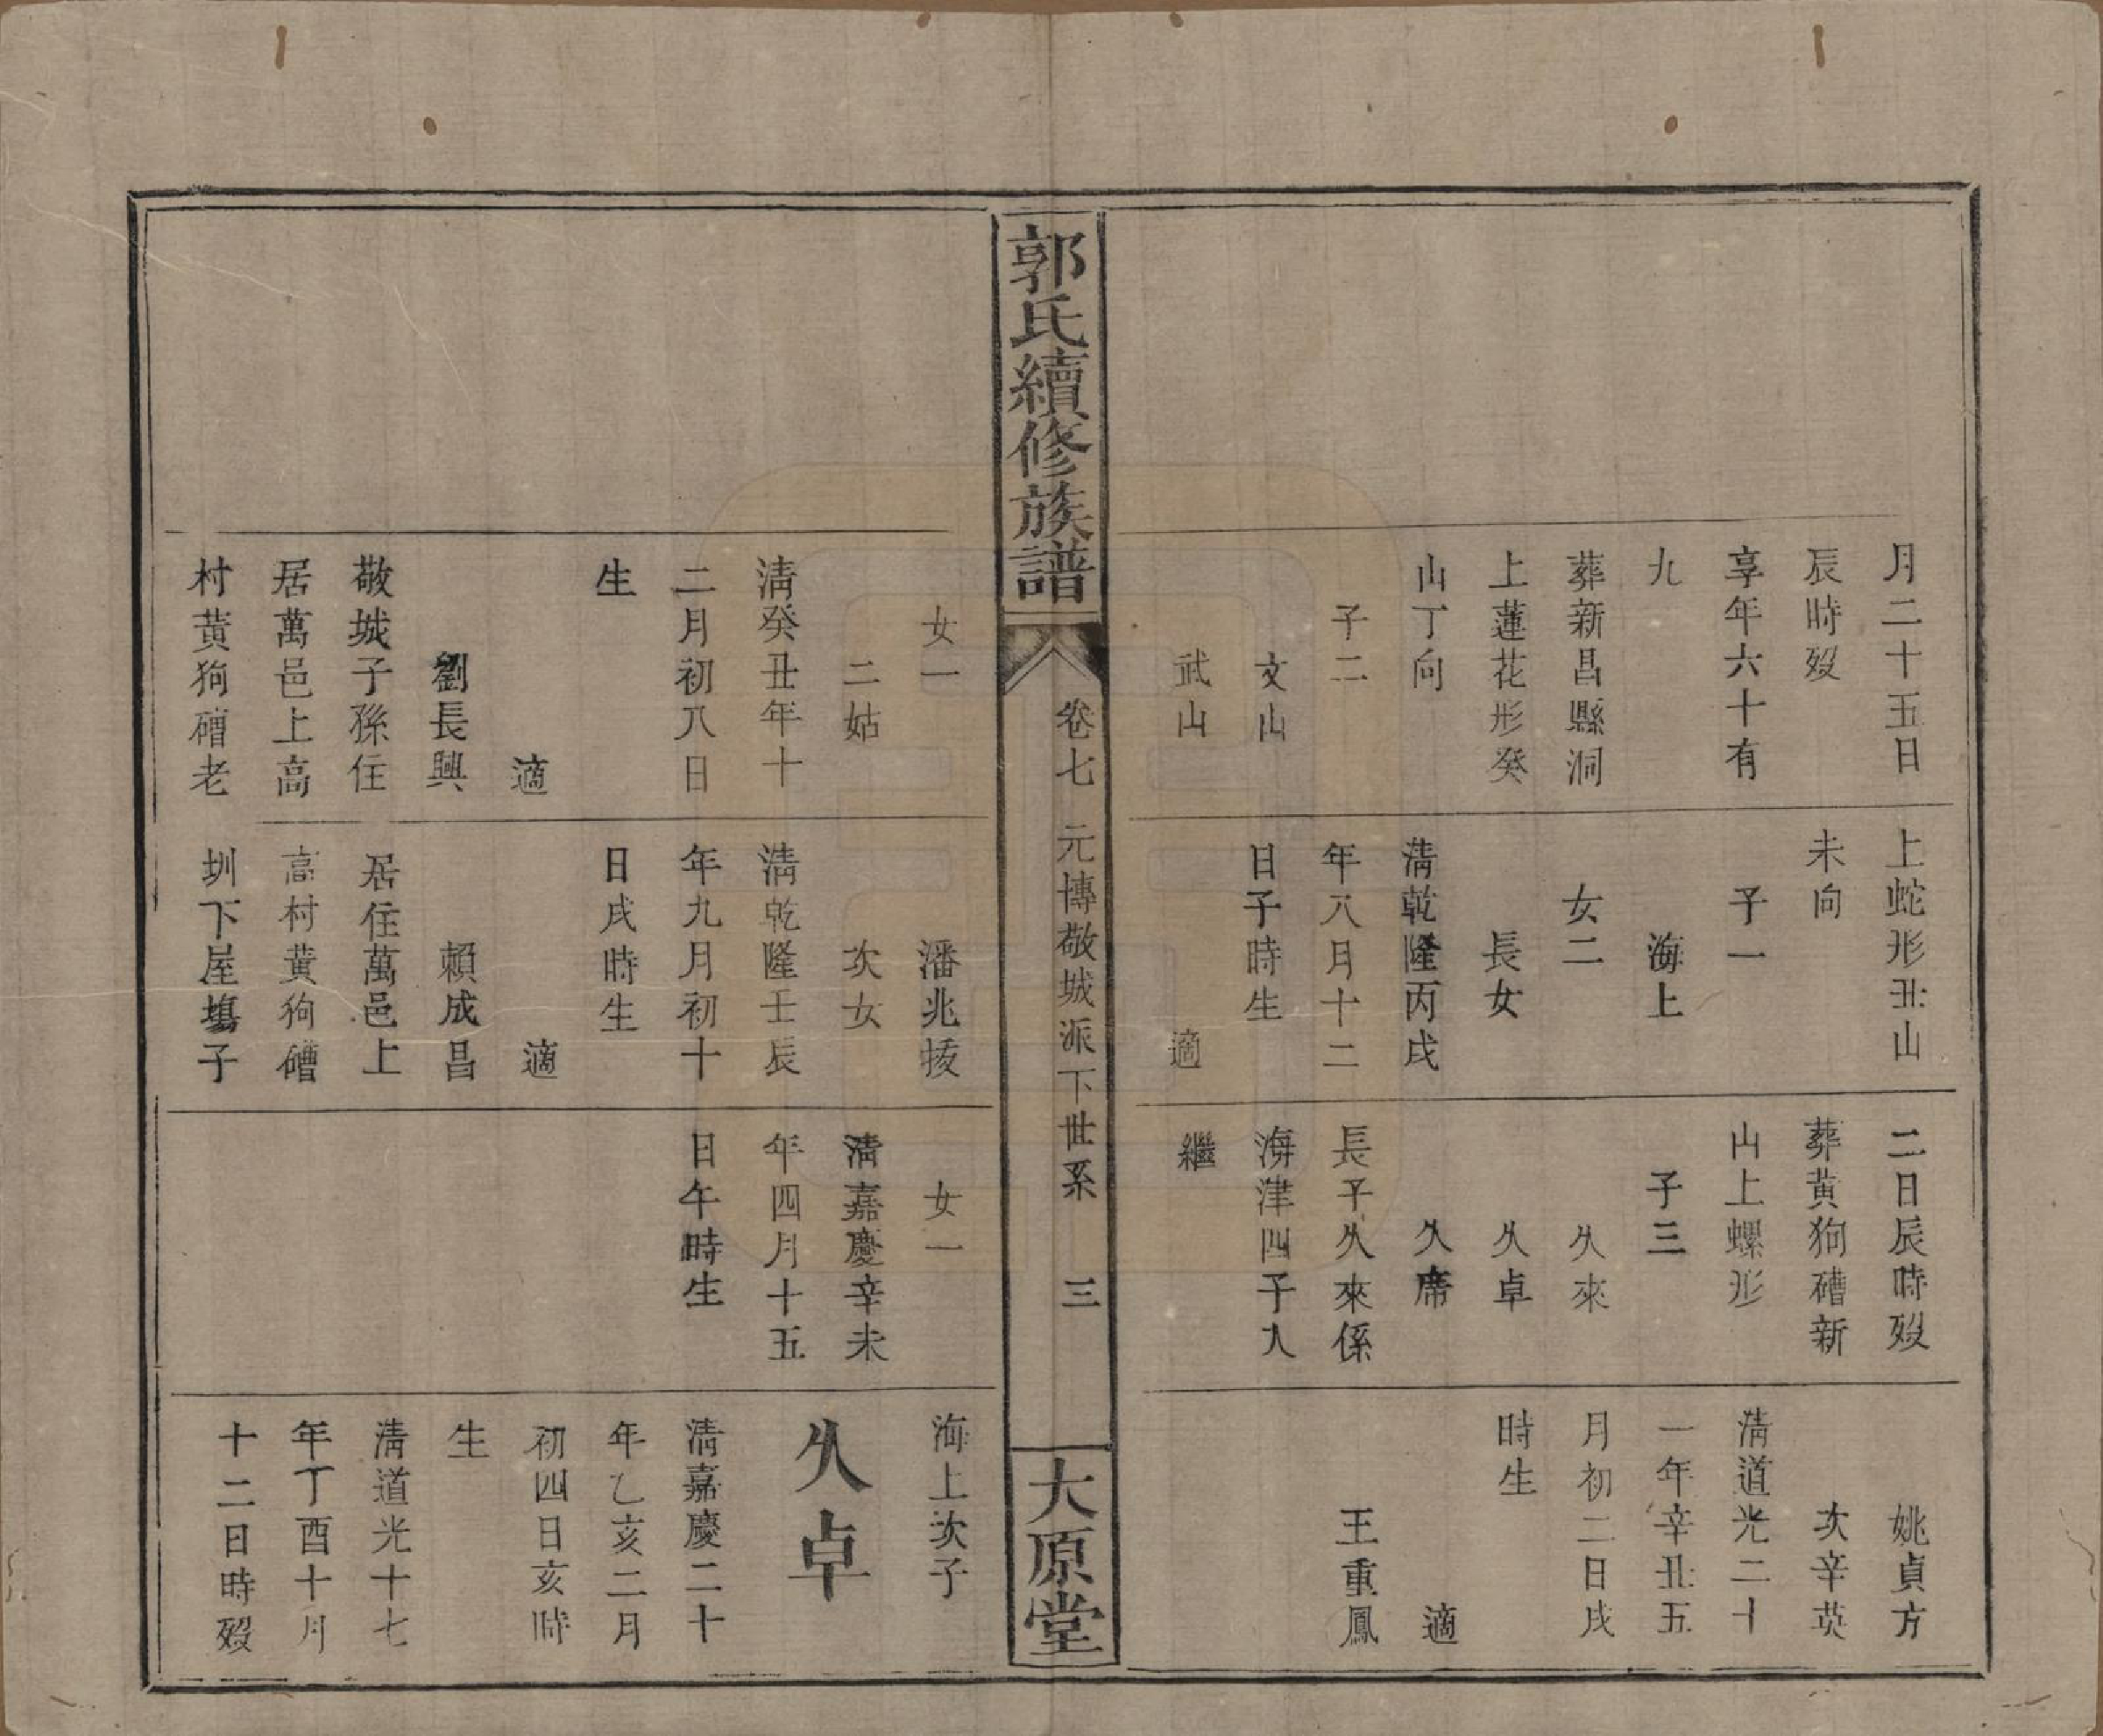 月二十五日
辰時殁
享年六十有
九
葬新昌縣洞
上蓮花形癸
山丁向
子二
文山
武山
上蛇形丑山
未向
子一
海上
女二
長女
清乾隆丙戌
年八月十二
日子時生
適
二日辰時殁
葬黃狗𥕢新
山上螺形
子三
久來
久卓
久席
長子久來係
海津四子入
繼
姚貞方
次辛英
清道光二十
一年辛丑五
月初二日戌
時生
適
王重鳳
郭氏續修族譜
卷七
元博敬城派下世系
三
大原堂
女一
二姑
清癸丑年十
二月初八日
生
適
劉長興
敬城子孫住
居萬邑上高
村黃狗𥕢老
潘兆掕
次女
清乾隆壬辰
年九月初十
日戌時生
適
賴成昌
居住萬邑上
高村黃狗𥕢
圳下屋塲子
女一
清嘉慶辛未
年四月十五
日午時生
海上次子
久卓
清嘉慶二十
年乙亥二月
初四日亥時
生
清道光十七
年丁酉十月
十二日時殁